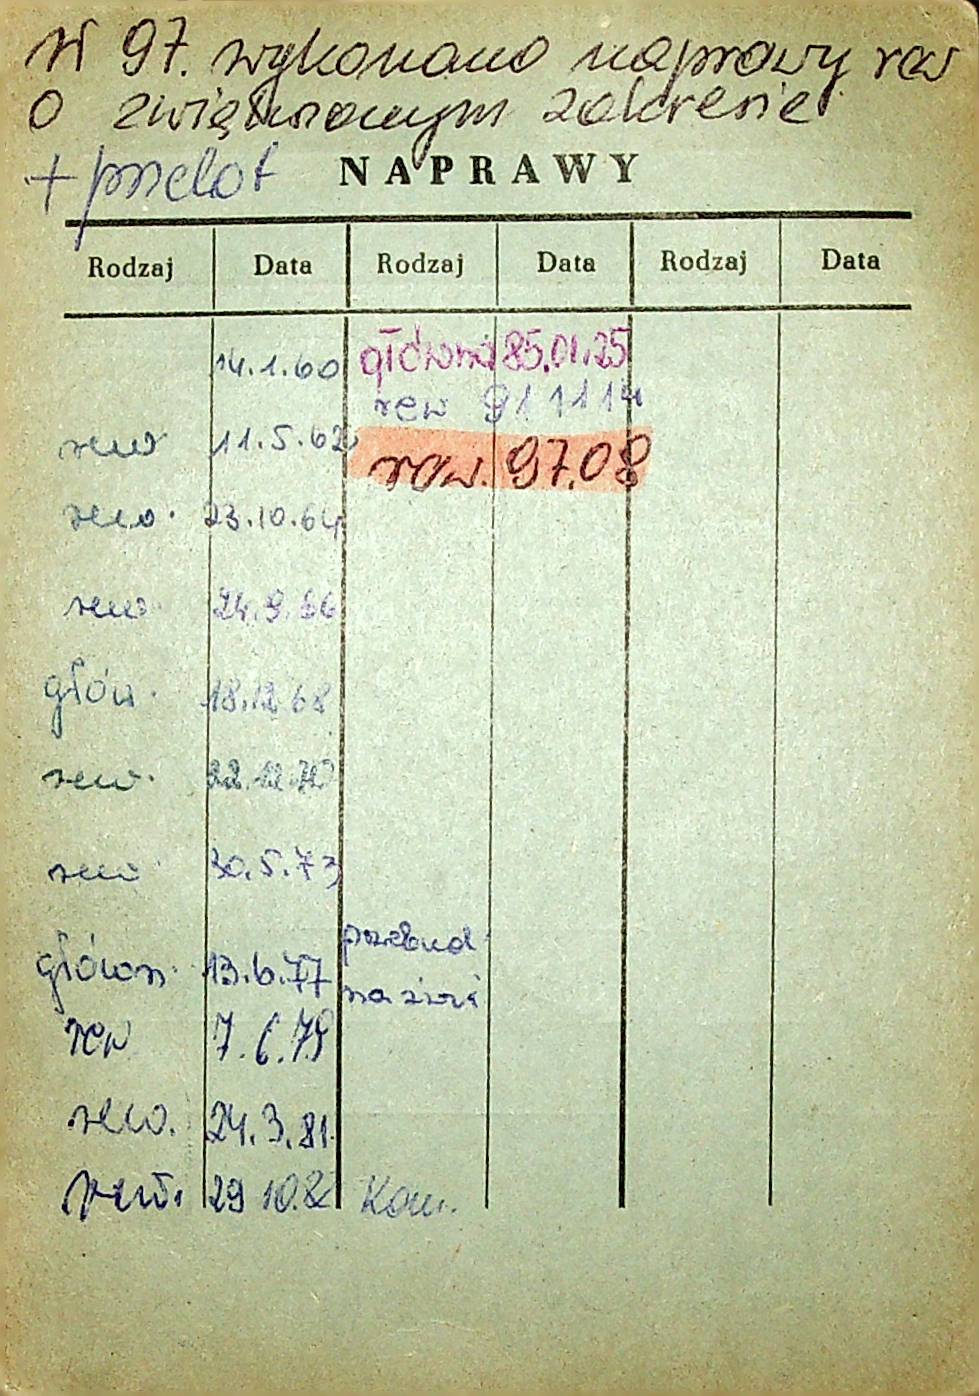 W 97. wykonano naprawy rew
o zwiększonym zakresie
+ przelot
NAPRAWY
Rodzaj Data Rodzaj Data Rodzaj Data
14.1.60 główna 85.01.25
rew 91 11 14
rew 11.5.62 rew. 97.08
rew. 23.10.64
rew. 24.9.66
głów. 18.12.68
rew. 22.12.70
rew 30.5.73
przebud.
główn. 13.6.77
rew 7.6.79
rew. 24.3.81
rew. 29 10.82 Kom.